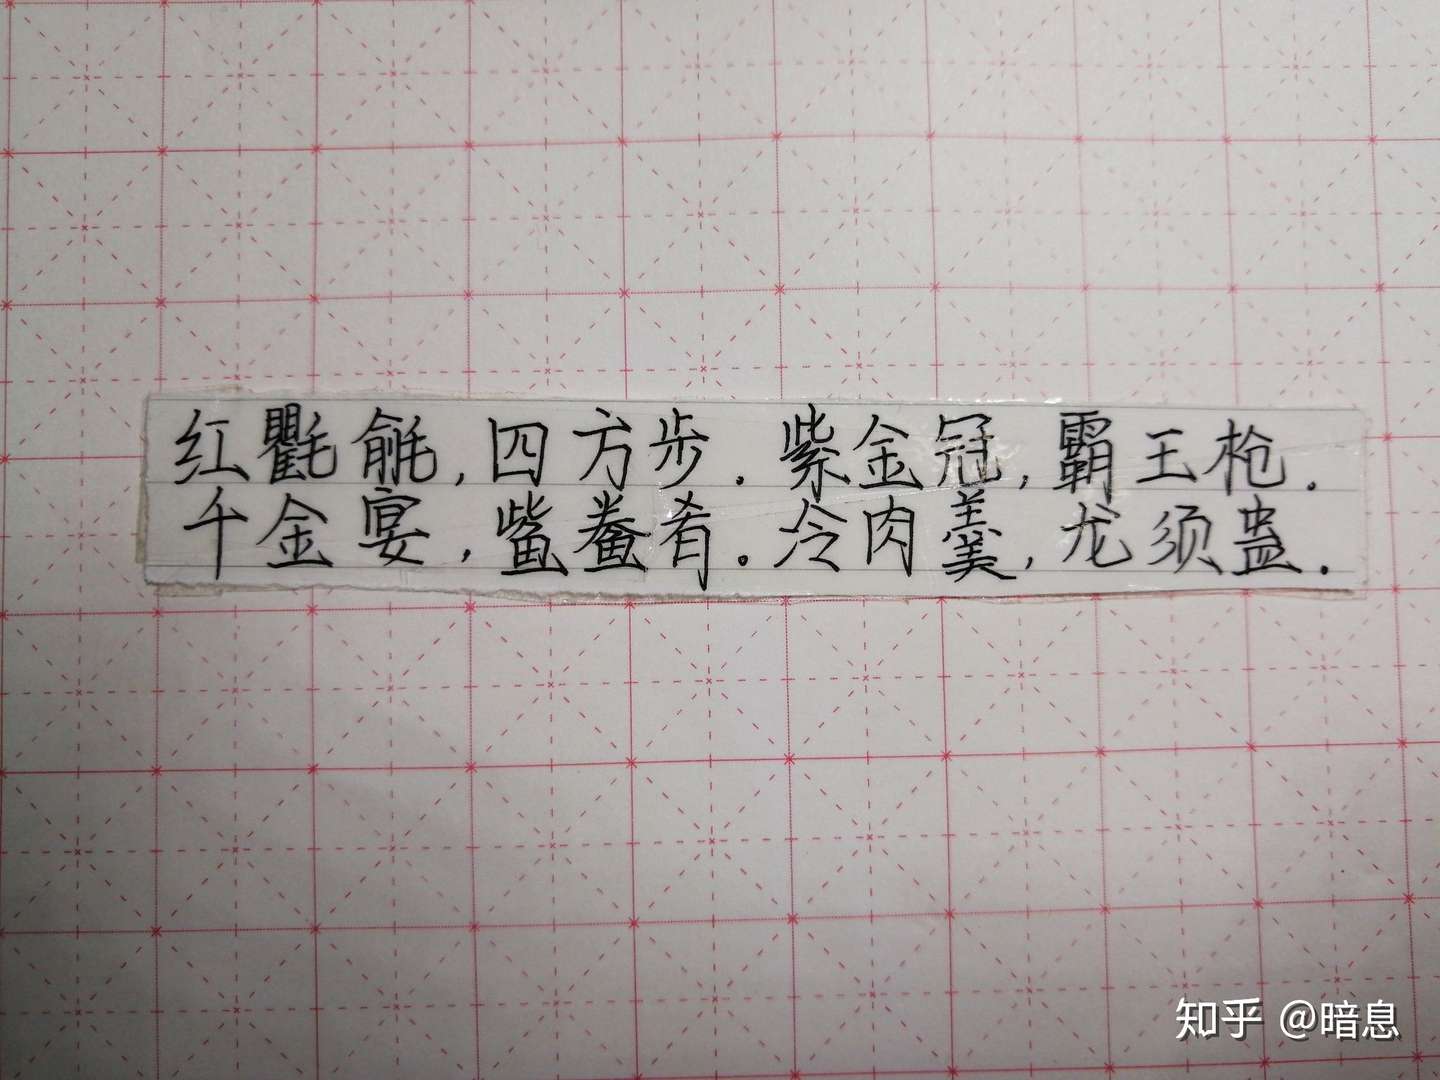 红氍毹,四方步.紫金冠,霸王枪.
千金宴,𫚖鲞肴。冷肉羹,龙须蛊.
知乎 @暗息